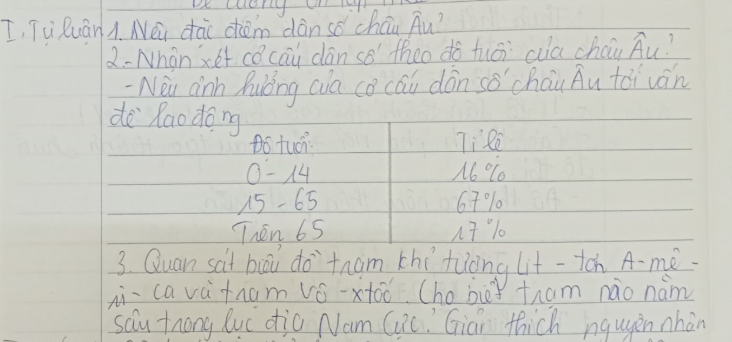 I, Tự luận 1. Nêu đặc điểm dân số châu Âu?
2 - Nhận xét cơ cấu dân số theo độ tuổi của châu Âu?
- Nêu ảnh hưởng của cơ cấu dân số châu Âu tới vấn
đề lao động
Độ tuổi Tỉ lệ
0 - 14 16%
15 - 65 67%
Trên 65 17%
3. Quan sát biểu đồ trạm khí tượng Lit - tơn A-mê -
ri - ca và trạm Vô - xtốc. Cho biết trạm nào nằm
sâu trong lục địa Nam Cực. Giải thích nguyên nhân